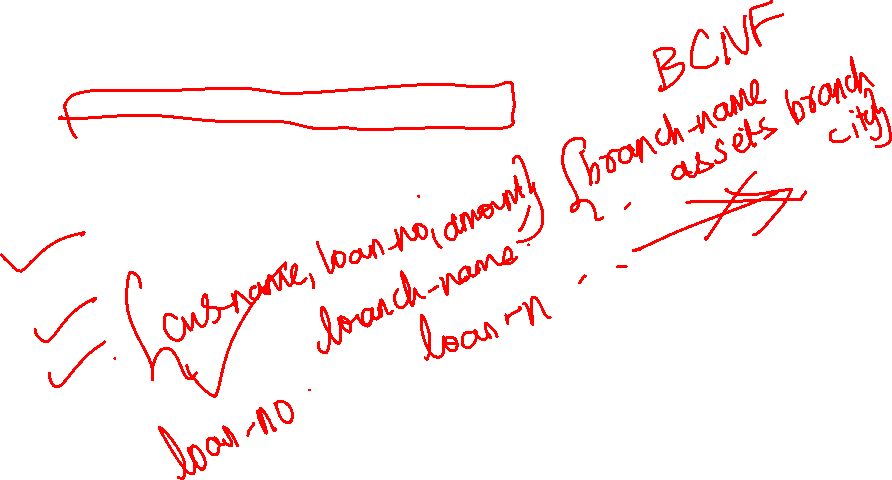 BCNF
{branch-name
assets branch
city}
{cus-name, loan-no, amount}
branch-name
loan-n
loan-no